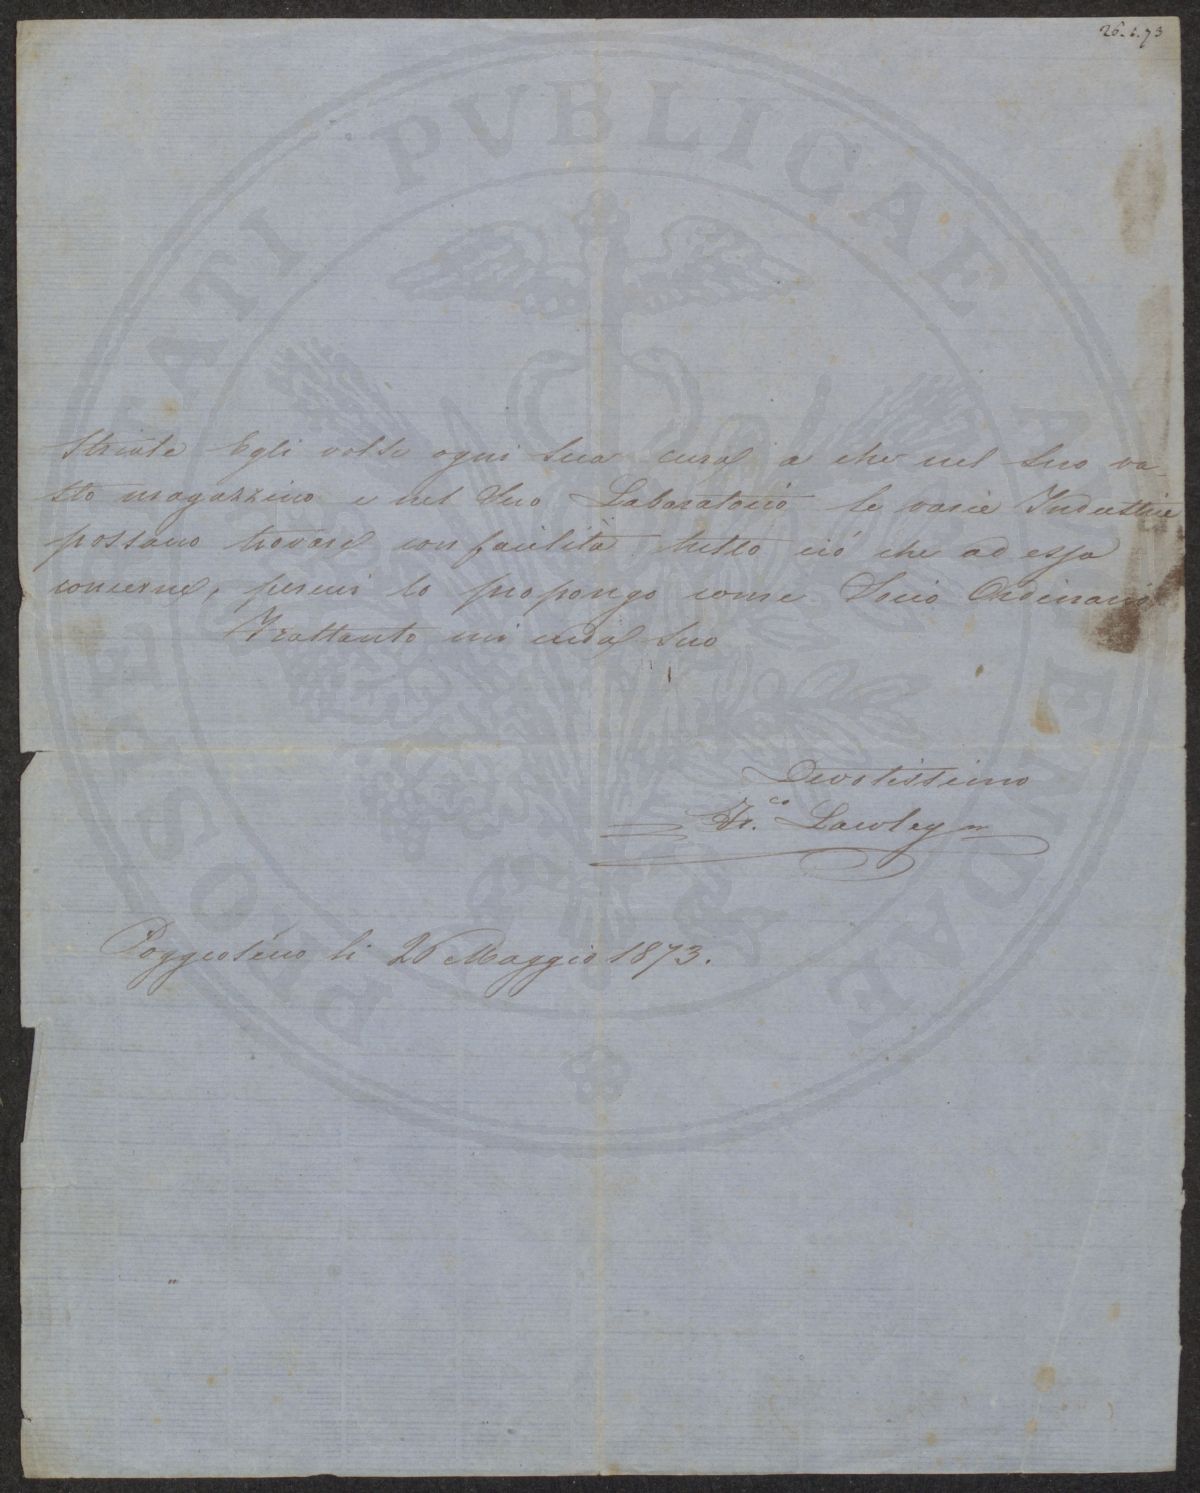 26.5.73
striale Egli volse ogni sua cura a che nel suo va-
sto magazzino e nel Suo Laboratorio le varie Industrie
possano trovare con facilità tutto ciò che ad essa
concerne, percui lo propongo come Socio Ordinario
Frattanto mi creda suo
Devotissimo
Fr.co Lawley
Poggeoseco li 26 Maggio 1873.
PROSPERITATI PVBLICAE AVGENDAE